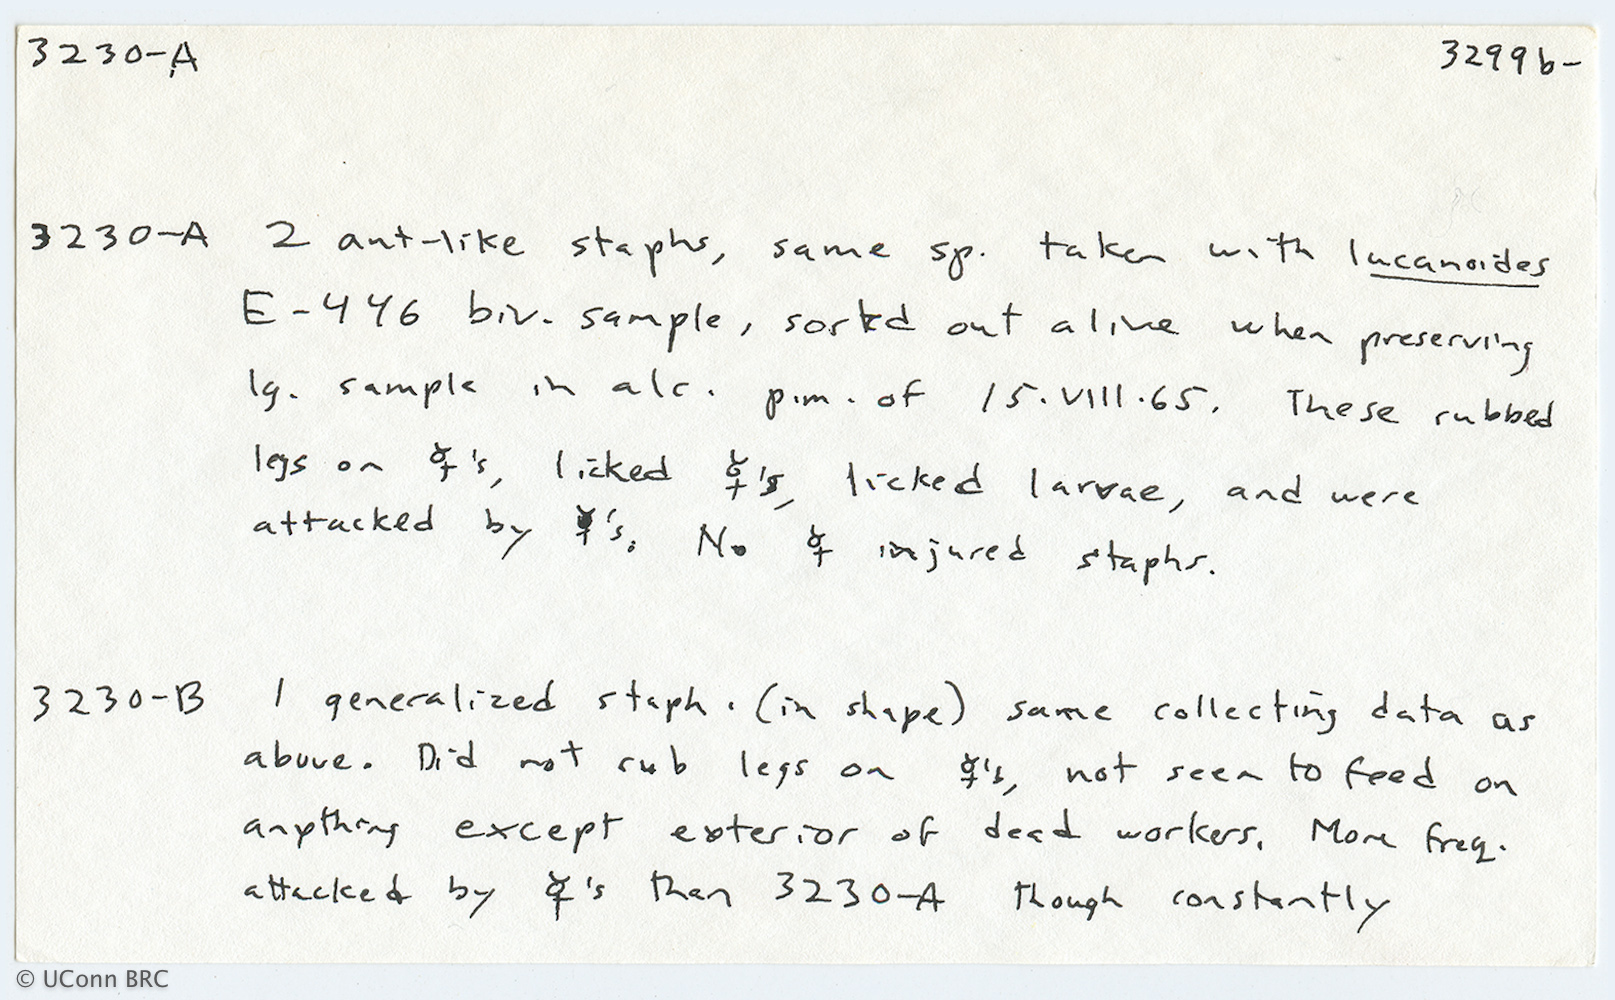 3230-A 3299b-
3230-A 2 ant-like staphs, same sp. taken with lucanoides
E-446 biv. sample, sorted out alive when preserving
lg. sample in alc. p.m. of 15.VIII.65. These rubbed
legs on ☿'s, licked ☿'s, licked larvae, and were
attacked by ☿'s. No ☿ injured staphs.
3230-B 1 generalized staph. (in shape) same collecting data as
above. Did not rub legs on ☿'s, not seen to feed on
anything except exterior of dead workers. More freq.
attacked by ☿'s than 3230-A though constantly
© UConn BRC